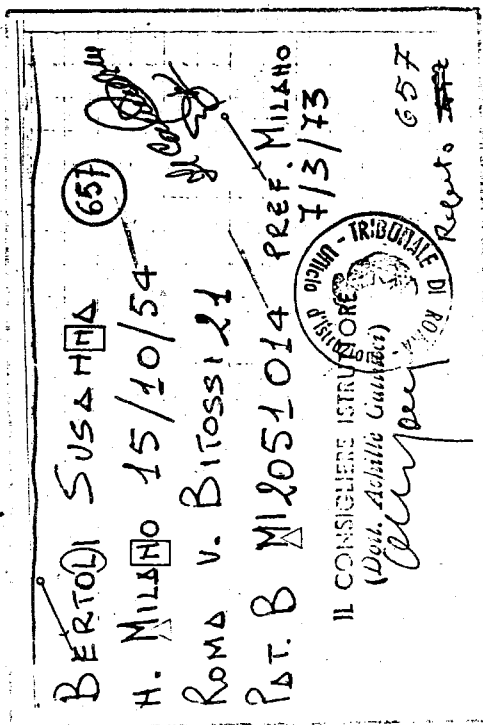 BERTOLI SUSANNA
657
N. MILANO 15/10/54
ROMA V. BITOSSI 21
PAT. B MI2051014 PREF. MILANO
7/3/73
IL CONSIGLIERE ISTRUTTORE
(Dott. Achille Gallucci)
TRIBUNALE DI ROMA
Ufficio
Reperto
657